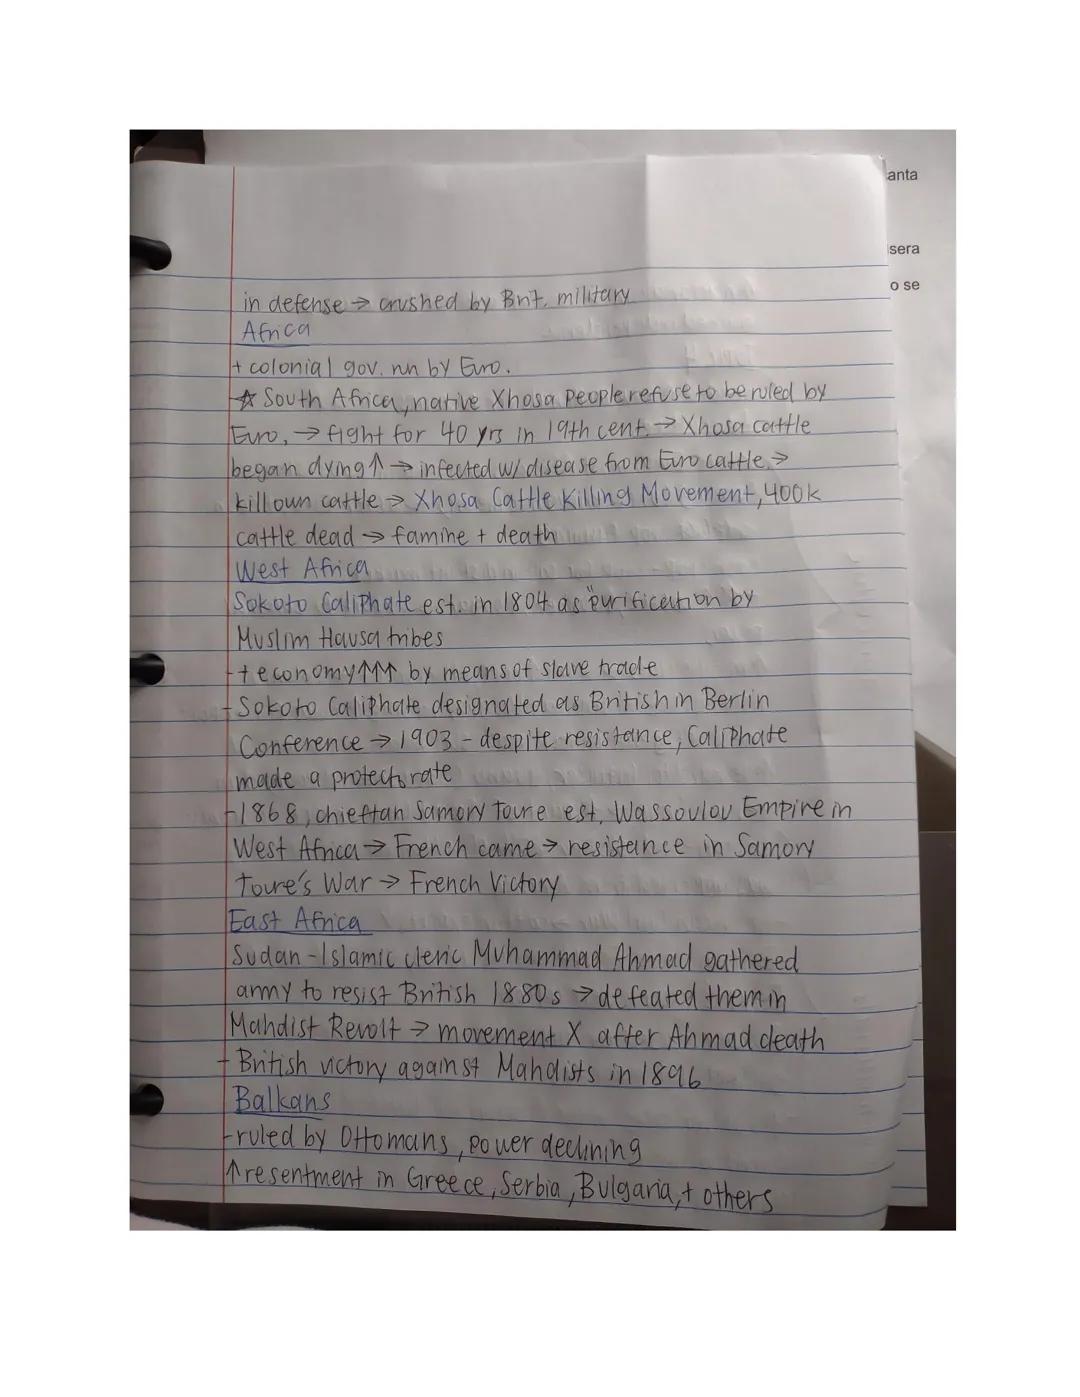 anta
sera
o se
in defense → crushed by Brit. military
Africa
+ colonial gov. run by Euro.
☆ South Africa, native Xhosa People refuse to be ruled by
Euro, → fight for 40 yrs in 19th cent. → Xhosa cattle
began dying ↑ → infected w/ disease from Euro cattle →
kill own cattle → Xhosa Cattle Killing Movement, 400k
cattle dead → famine + death
West Africa
Sokoto Caliphate est. in 1804 as "purification by
Muslim Hausa tribes
+ economy ↑↑↑ by means of slave trade
- Sokoto Caliphate designated as British in Berlin
Conference → 1903 - despite resistance, Caliphate
made a protectorate
- 1868, chieftan Samory Toure est, Wassoulou Empire in
West Africa → French came → resistance in Samory
Toure's War → French Victory
East Africa
Sudan - Islamic cleric Muhammad Ahmad gathered
army to resist British 1880s → defeated them in
Mahdist Revolt → movement X after Ahmad death
- British victory against Mahdists in 1896
Balkans
- ruled by Ottomans, power declining
↑ resentment in Greece, Serbia, Bulgaria, + others